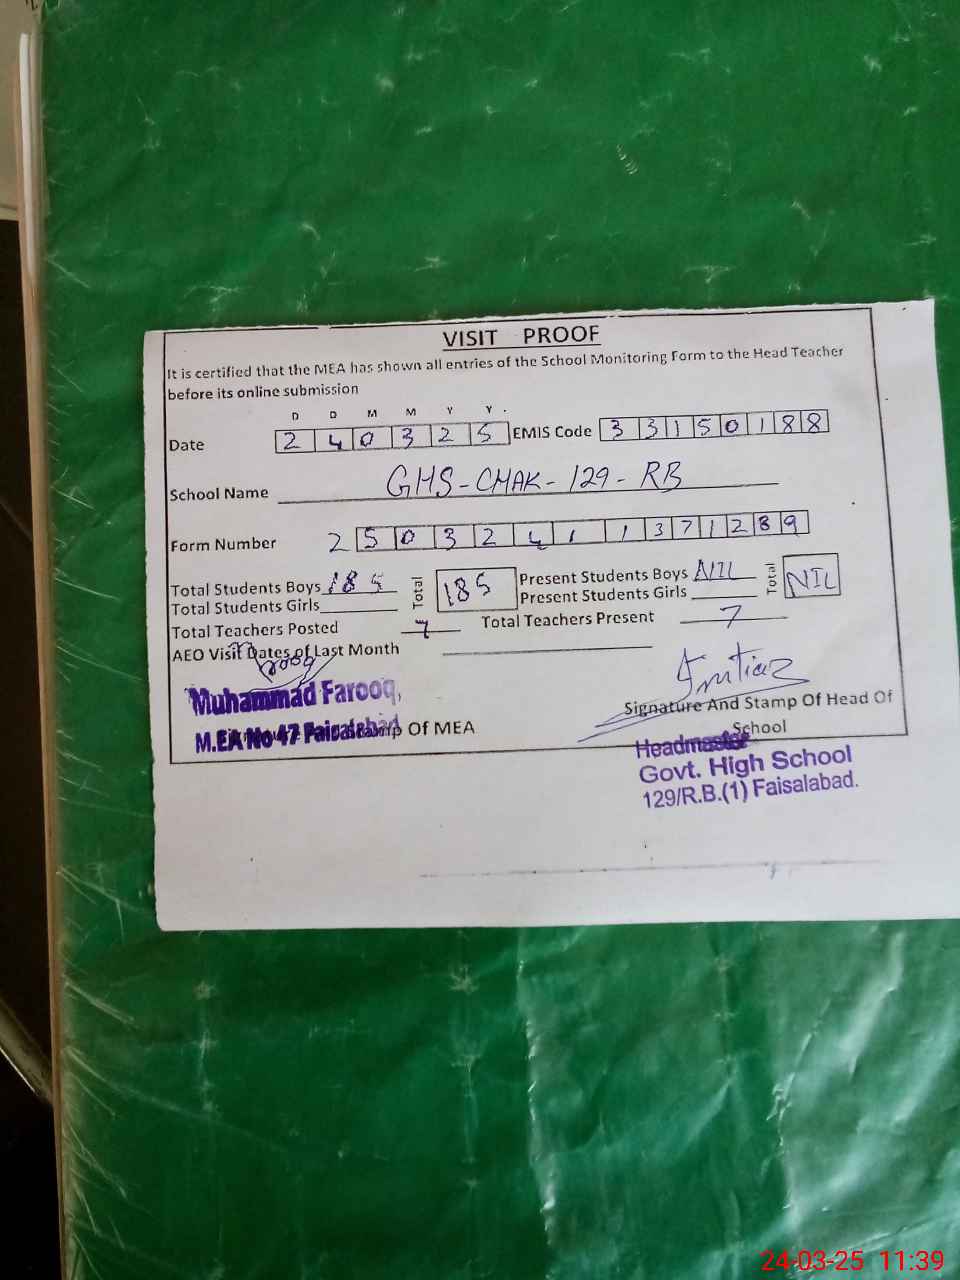 VISIT PROOF
It is certified that the MEA has shown all entries of the School Monitoring Form to the Head Teacher
before its online submission
D D M M Y Y
Date 2 4 0 3 2 5 EMIS Code 3 3 1 5 0 1 8 8
School Name GHS-CHAK-129-RB
Form Number 2 5 0 3 2 4 1 1 3 7 1 2 8 9
Total Students Boys 185 Total 185 Present Students Boys NIL Total NIL
Total Students Girls Present Students Girls
Total Teachers Posted 7 Total Teachers Present 7
AEO Visit Dates of Last Month
Farooq Imtiaz
Muhammad Farooq,
M.EA No 47 Faisalabad
Stamp Of MEA
Signature And Stamp Of Head Of
School
Headmaster
Govt. High School
129/R.B.(1) Faisalabad.
24-03-25 11:39